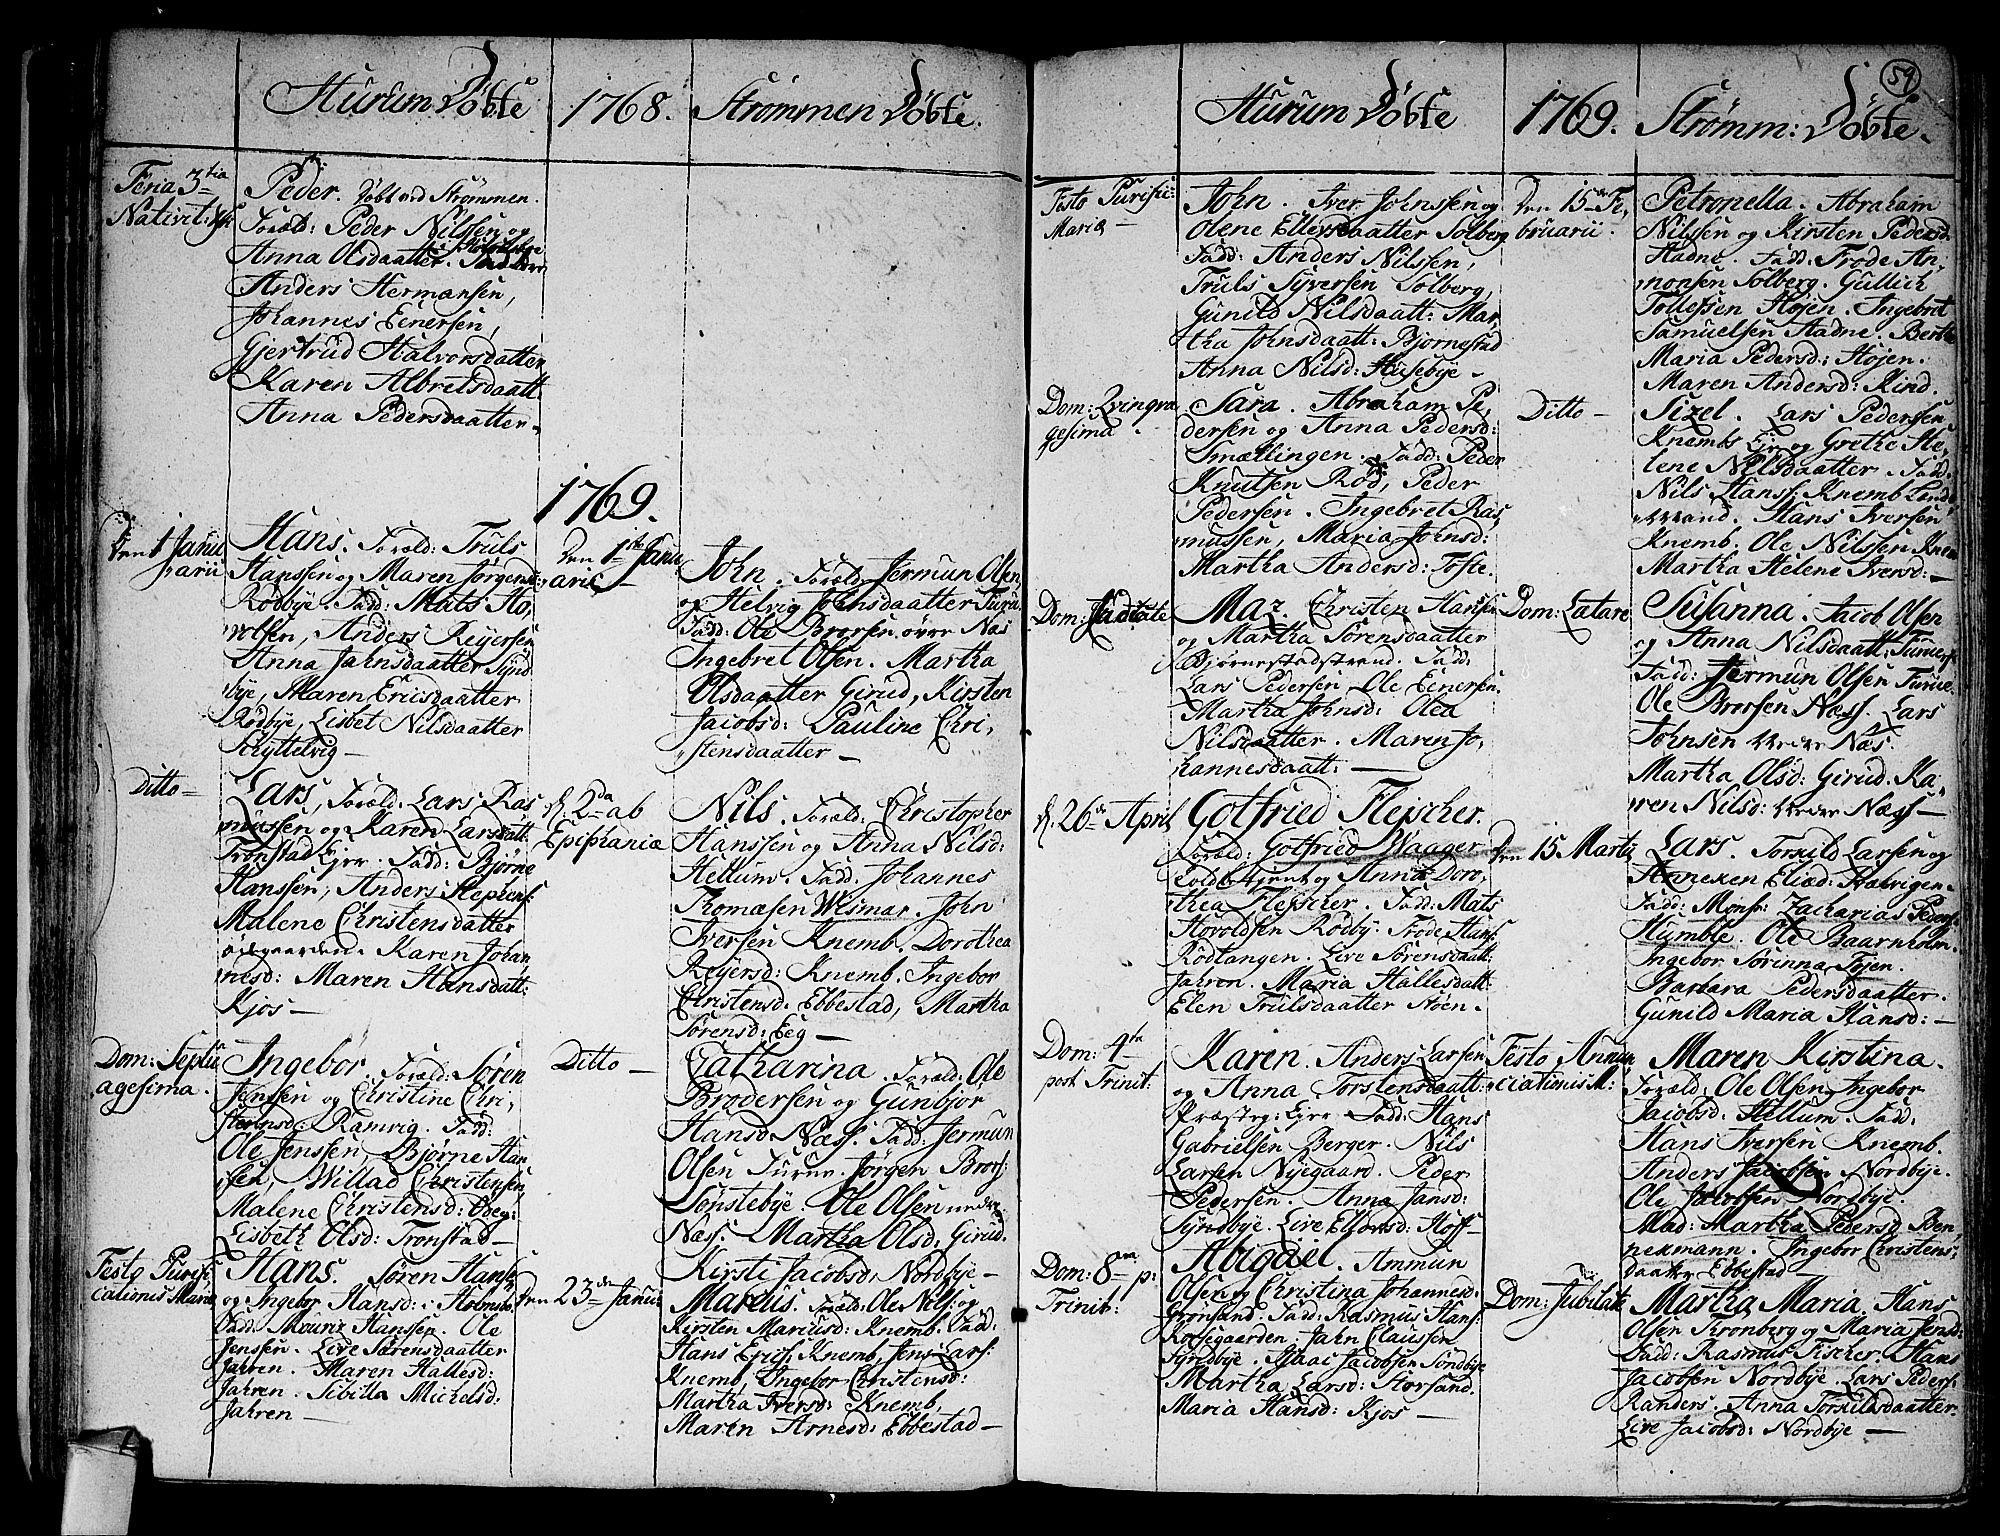 Hurum Døbte
1768.
Strømmen Døbte.
Feria 3tia
Nativit:
Peder. Døbt ved Strømmen.
Foræld: Peder Nilssen og
Anna Olsdaatter.
Anders Hermansen,
Johannes Einersen,
Gjertrud Halvorsdatter
Karen Albretsdaatt:
Anna Pedersdaatter.
1769.
Den 1 Janu
arii
Hans. Foræld: Truls
Hanssen og Maren Jørgensd:
Rødbye. Fadd: Mats Ho,
volsen, Anders Reyersen
Anna Jahnsdaatter Synd
bye, Maren Ericsdaatter
Rødbye, Lisbet Nilsdaatter
Schyttelvig—
Ditto—
Lars, Foræld: Lars Ras
mussen og Karen Larsdatt:
Tronstad Ejer. Fadd: Bjørne
Hanssen, Anders Stephens:
Malene Christensdatter
Ødegaarden. Karen Johan
nesd: Maren Hansdatt:
Kjos—
Dom: Septu
agesima.
Ingebor. Foræld: Søren
Jenssen og Christine Chri,
stensd: Ramvig. Fadd:
Ole Jenssen, Bjørne Han
ssen, Willad Christensen
Malene Christensd: Ødeg:
Lisbeth Olsd: Tronstad—
Festo Purifi
cationis Mariæ
Hans. Søren Hans:
og Ingebor Hansd: i Holmsbo.
Fadd: Mouriz Hanssen. Ole
Jensen. Live Sørensdaatter
Jahren. Maren Hallesd:
Jahren. Sibilla Michelsd:
Jahren—
Den 1ste Janu
arii—
John. Foræld: Jermun Olsen
og Helvig Johnsdaatter Furu
Fadd: Ole Brorsen øvre Næs
Ingebret Olsen. Martha
Olsdaatter Girud, Kirsten
Jacobsd: Pauline Chri,
stensdaatter—
d. 2da ab
Epiphaniæ
Nils. Foræld: Christopher
Hanssen og Anna Nilsd:
Hellum. Fadd: Johannes
Thomæsen Wismar. John
Iversen Knemb. Dorothea
Reyersd: Knemb. Ingebor
Christensd. Ebbestad, Martha
Sørensd: Eeg—
Ditto—
Catharina. Foræld: Ole
Brodersen og Gunbjor
Hansd Næss. Fadd: Jermun
Olsen Furue. Jørgen Brors:
Sønstebye. Ole Olsen nedre
Næss. Martha Olsd: Girud.
Kirsti Jacobsd: Nordbye—
Den 23de Janu:
Marcus. Foræld: Ole Nils: og
Kirsten Marcusd: Knemb. Fadd:
Hans Erics: Knemb, Jens Lars:
Knemb, Ingebor Christensd:
Martha Iversd: Knemb,
Maren Arnesd: Ebbestad—
59
Hurum Døbte
1769.
Strømm: Døbte.
Festo Purific:
Mariæ—
John. Iver Johnssen og
Olene Ellersdaatter Solberg
Fadd: Anders Nilssen,
Truls Syversen Solberg,
Gunild Nilsdaatt: Mar,
tha Johnsdaatt: Bjørnestad
Anna Nilsd: Husebye—
Dom: Qvinqva
gesima.
Sara. Abraham Pe,
dersen og Anna Pedersd:
Smætlingen. Fadd: Peder
Knutsen Rød, Peder
Pedersen. Ingebret Ras,
mussen, Maria Johnsd:
Martha Andersd: Tofte.
Dom:
Maz. Christen Hanss:
og Martha Sørensdaatter
Bjørnestadstrand. Fadd:
Lars Pedersen Ole Einersen
Martha Johnsd: Olea
Nilsdaatter. Maren Jo,
hannesdaatt:—
d. 26de April
Gotfried Flejscher.
Foræld: Gotfried Waager
og Anna Doro,
thea Flejscher. Fadd: Mats
Hovoldsen Rødby. Frode Hans:
Rødtangen. Live Sørensdaatt:
Jahren. Maria Hallesdatt:
Elen Trulsdaatter Nøen—
Dom: 4ta
post Trinit:
Karen. Anders Larsen
og Anna Torstensdaatt:
Præsteg: Ejer Fadd: Hans
Gabrielsen Berger. Nils
Larsen Nyegaard. Peder
Pedersen. Anna Jansd:
Syndbye. Live Ellonsd: Hoff—
Dom: 8va p:
Trinit:
Abigael. Ammun
Olsen og Christina Johannesd:
Grønsand. Fadd: Rasmus Hans:
Korsegaarden: Jahn Claussen
Syndbye. Isaac Jacobsen Søndbye
Martha Larsd: Storsand.
Maria Hansd: Kjos—
Den 15de Fe,
bruarii.
Petronella. Abraham
Nilssen og Kirsten Pedersd:
Hadne. Fadd: Frode An,
monsen Solberg. Gullich
Tollefssen Højen. Ingebret
Samuelsen Hadne. Berthe
Maria Pedersd: Højen.
Maren Andersd: Kind.
Ditto—
Sizel. Lars Pedersen
Knembs Ejr og Grethe He,
lene Nilsdaatter. Fadd:
Nils Hans: Knemb Lænds
mand. Hans Iversen
Knemb. Ole Nilssen Knem
Martha Helene Iversd:—
Dom: Lætare
Susanna. Jacob Olsen
og Anna Nilsdaatt: Furue
Fadd: Jermun Olsen Furue
Ole Brorsen Næss. Lars
Johnsen Nedre Næs.
Martha Olsd: Girud. Ka,
ren Nilsd: Nedre Næss—
Den 15 Martij
Lars. Torkild Larsen og
Annexen Eliæd: Halvigen.
Fadd: Monsr: Zacharias Peders:
Humble. Ole Baarnholm.
Ingebor Sørinna Tøjen.
Barbara Pedersdaatter.
Gunild Maria Hansd:—
Festo Annun
ciationis M:
Maren Kirstina.
Foræld: Ole Olsen Ingebor
Jacobsd: Hellum. Fadd:
Hans Iversen Knemb.
Anders Jacobsen Nordbye.
Ole Jacobsen Nordbye
Mad: Martha Pedersd Ben
nekmann. Ingebor Christens
daatter Ebbestad—
Dom: Jubilate
Martha Maria. Hans
Olsen Tronberg og Maria Jensd:
Fadd: Rasmus Fischer. Hans
Jacobsen Nordbye. Lars Peders:
Randers. Anna Torkildsdaatter
Live Jacobsd: Nordbye—